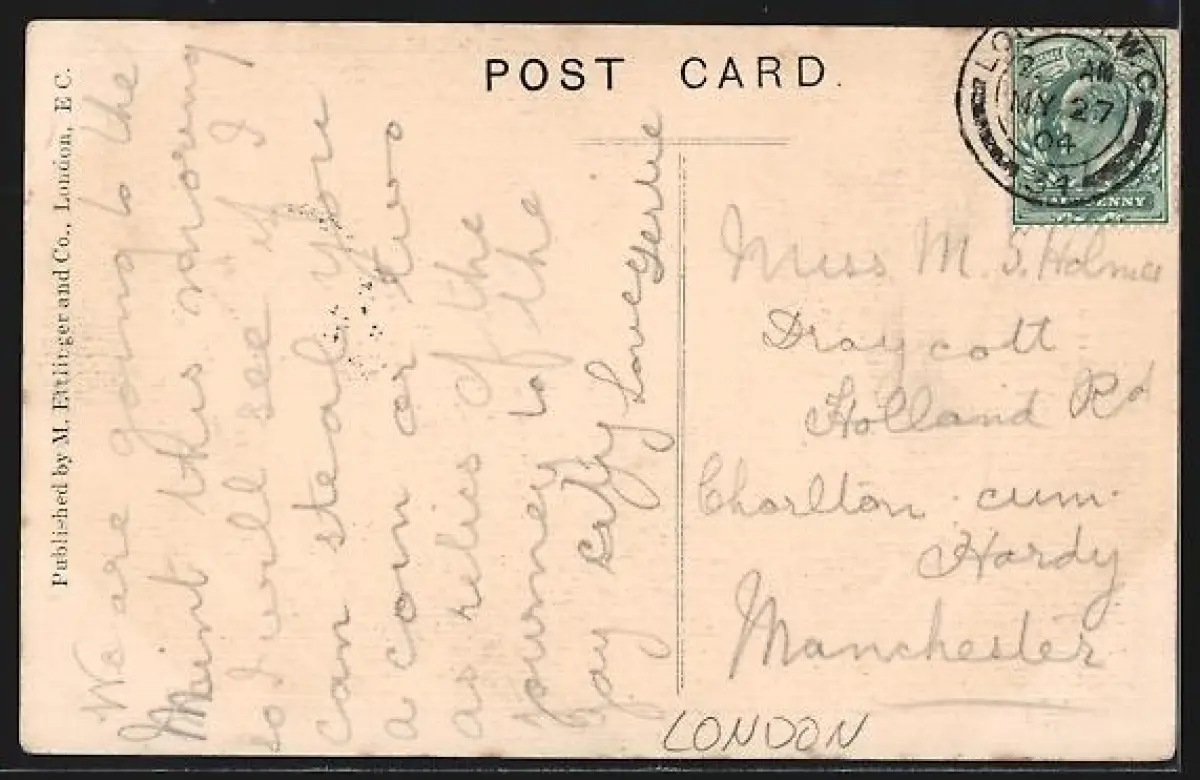 Published by M. Ettlinger and Co., London, E C.
POST CARD.
LONDON. W.C
2. AM
MY 27
04
34
HALFPENNY
We are going to the
Mint this morning
so I will see if I
can steal you
a coin or two
as relics of the
journey to the
gay city Love Gertie
Miss M. S. Holmes
Draycott
Holland Rd
Chorlton. cum.
Hardy
Manchester
LONDON